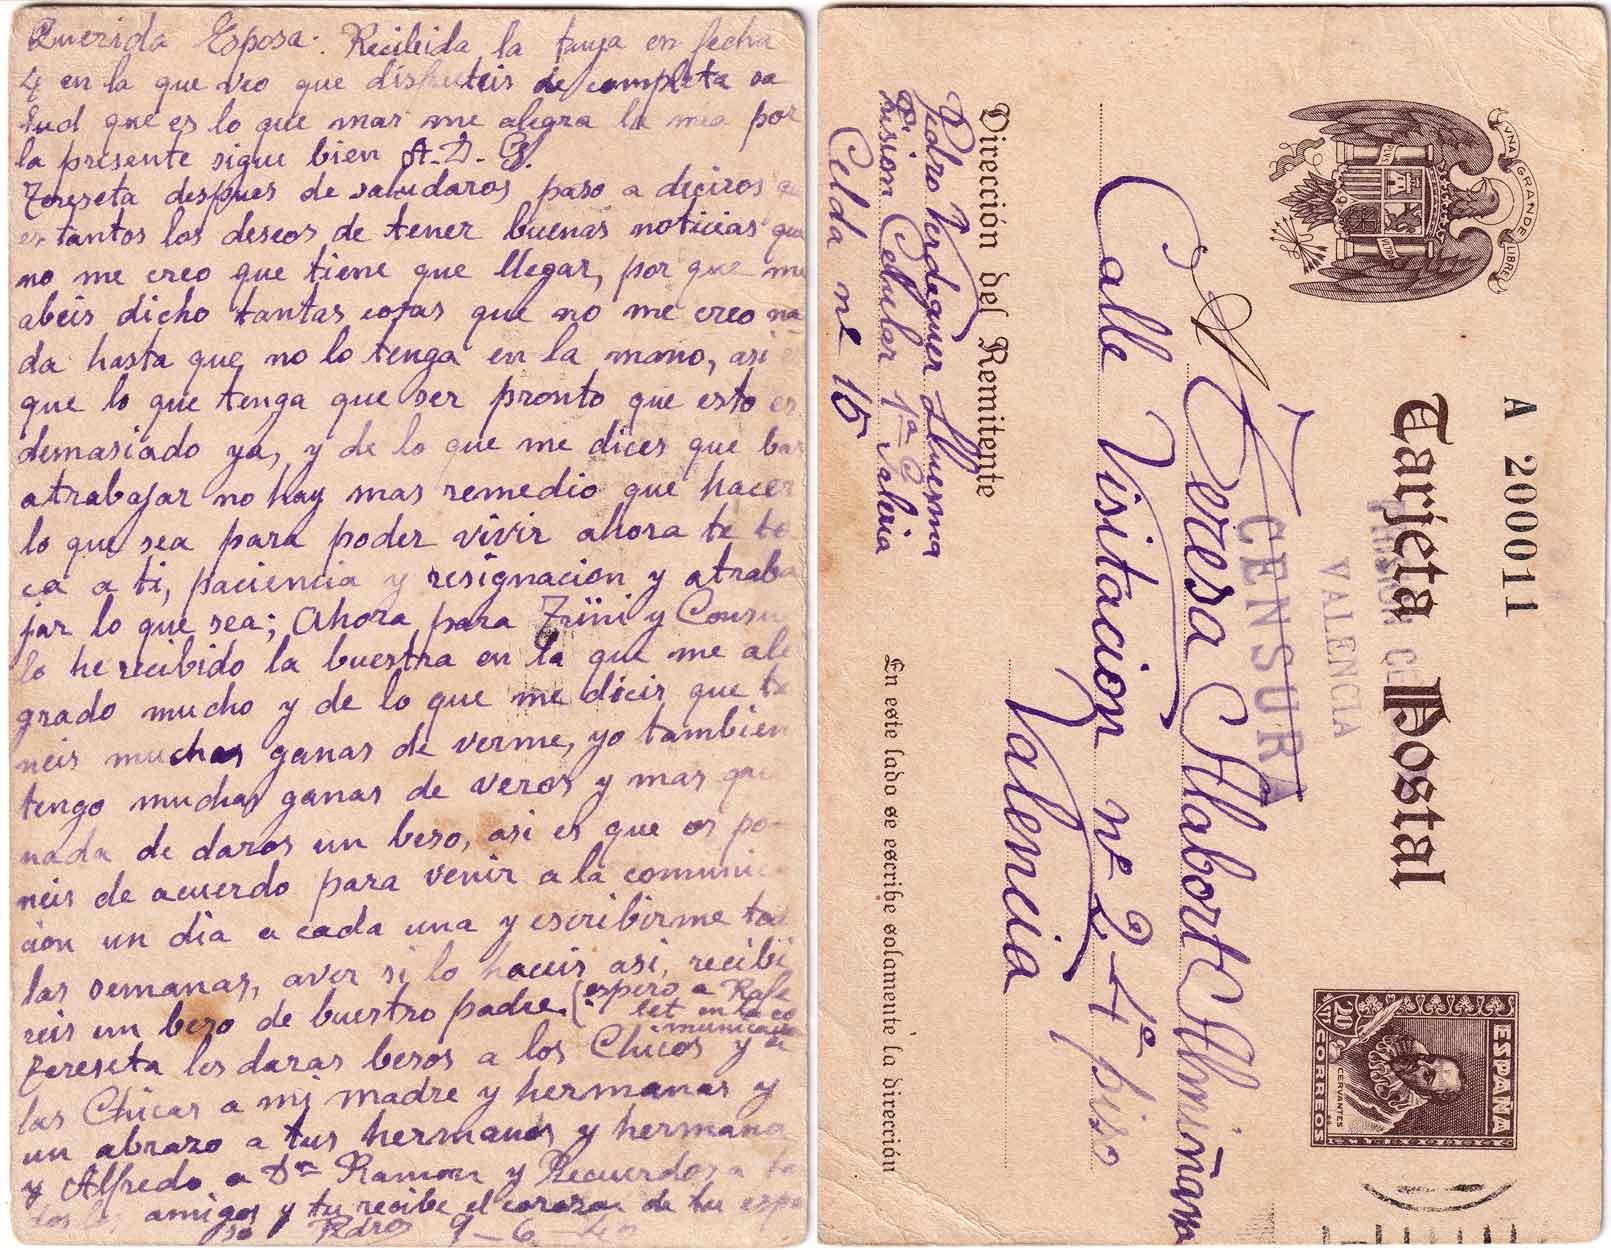 Querida Esposa. Recibida la tuya en fecha
4 en la que veo que disfruteis de completa sa
lud que es lo que mas me alegra la mia por
la presente sigue bien A. D. G.
Tereseta despues de saludaros paso a deciros
es tantos los deseos de tener buenas noticias que
no me creo que tiene que llegar, por que me
abeis dicho tantas cosas que no me creo na
da hasta que no lo tenga en la mano, asi es
que lo que tenga que ser pronto que esto es
demasiado ya, y de lo que me dices que bas
atrabajar no hay mas remedio que hacer
lo que sea para poder vivir ahora te to
ca a ti, paciencia y resignacion y atraba
jar lo que sea; Ahora para Trini y Consue
lo he recibido la buestra en la que me ale
grado mucho y de lo que me decis que te
neis muchas ganas de verme, yo tambien
tengo muchas ganas de veros y mas que
nada de daros un beso, asi es que os po-
neis de acuerdo para venir a la comunica
cion un dia a cada una y escribirme to
las semanas, aver si lo haceis asi, recibi
reis un beso de buestro padre. (espero a Rafe
let en la co
municacion
Tereseta les daras besos a los Chicos y a
las Chicas a mi madre y hermanas y
un abrazo a tus hermanos y hermana
y Alfredo a Dn Ramon y Recuerdos a to
dos los amigos y tu recibe el corazon de tu espo
so Pedro 9-6-40
UNA GRANDE LIBRE
PLUS
VLTRA
A 200011
Tarjeta Postal
ESPAÑA
CERVANTES
20 CTS
CORREOS
PRISION CE
VALENCIA
CENSURA
A Teresa Alabort Almiñana
Calle Visitacion nº 24 4º piso
Valencia
Dirección del Remitente
Pedro Verdaguer Lluesma
Prision Celular 1ª Galeria
Celda nº 15
En este lado se escribe solamente la dirección